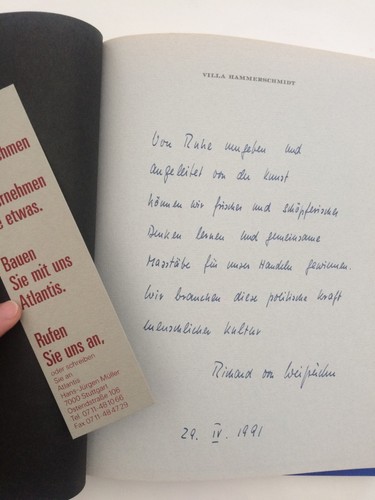 VILLA HAMMERSCHMIDT
Von Ruhe umgeben und
angeleitet von der Kunst
können wir frischer und schöpferischer
Denken lernen und gemeinsame
Massstäbe für unser Handeln gewinnen.
Wir brauchen diese politische Kraft
menschlicher Kultur
Richard von Weizsäcker
29. IV. 1991
hmen
rnehmen
e etwas.
Bauen
Sie mit uns
Atlantis.
Rufen
Sie uns an,
oder schreiben
Sie an
Atlantis
Hans-Jürgen Müller
7000 Stuttgart
Ostendstraße 106
Tel. 0711-481066
Fax 0711-484729